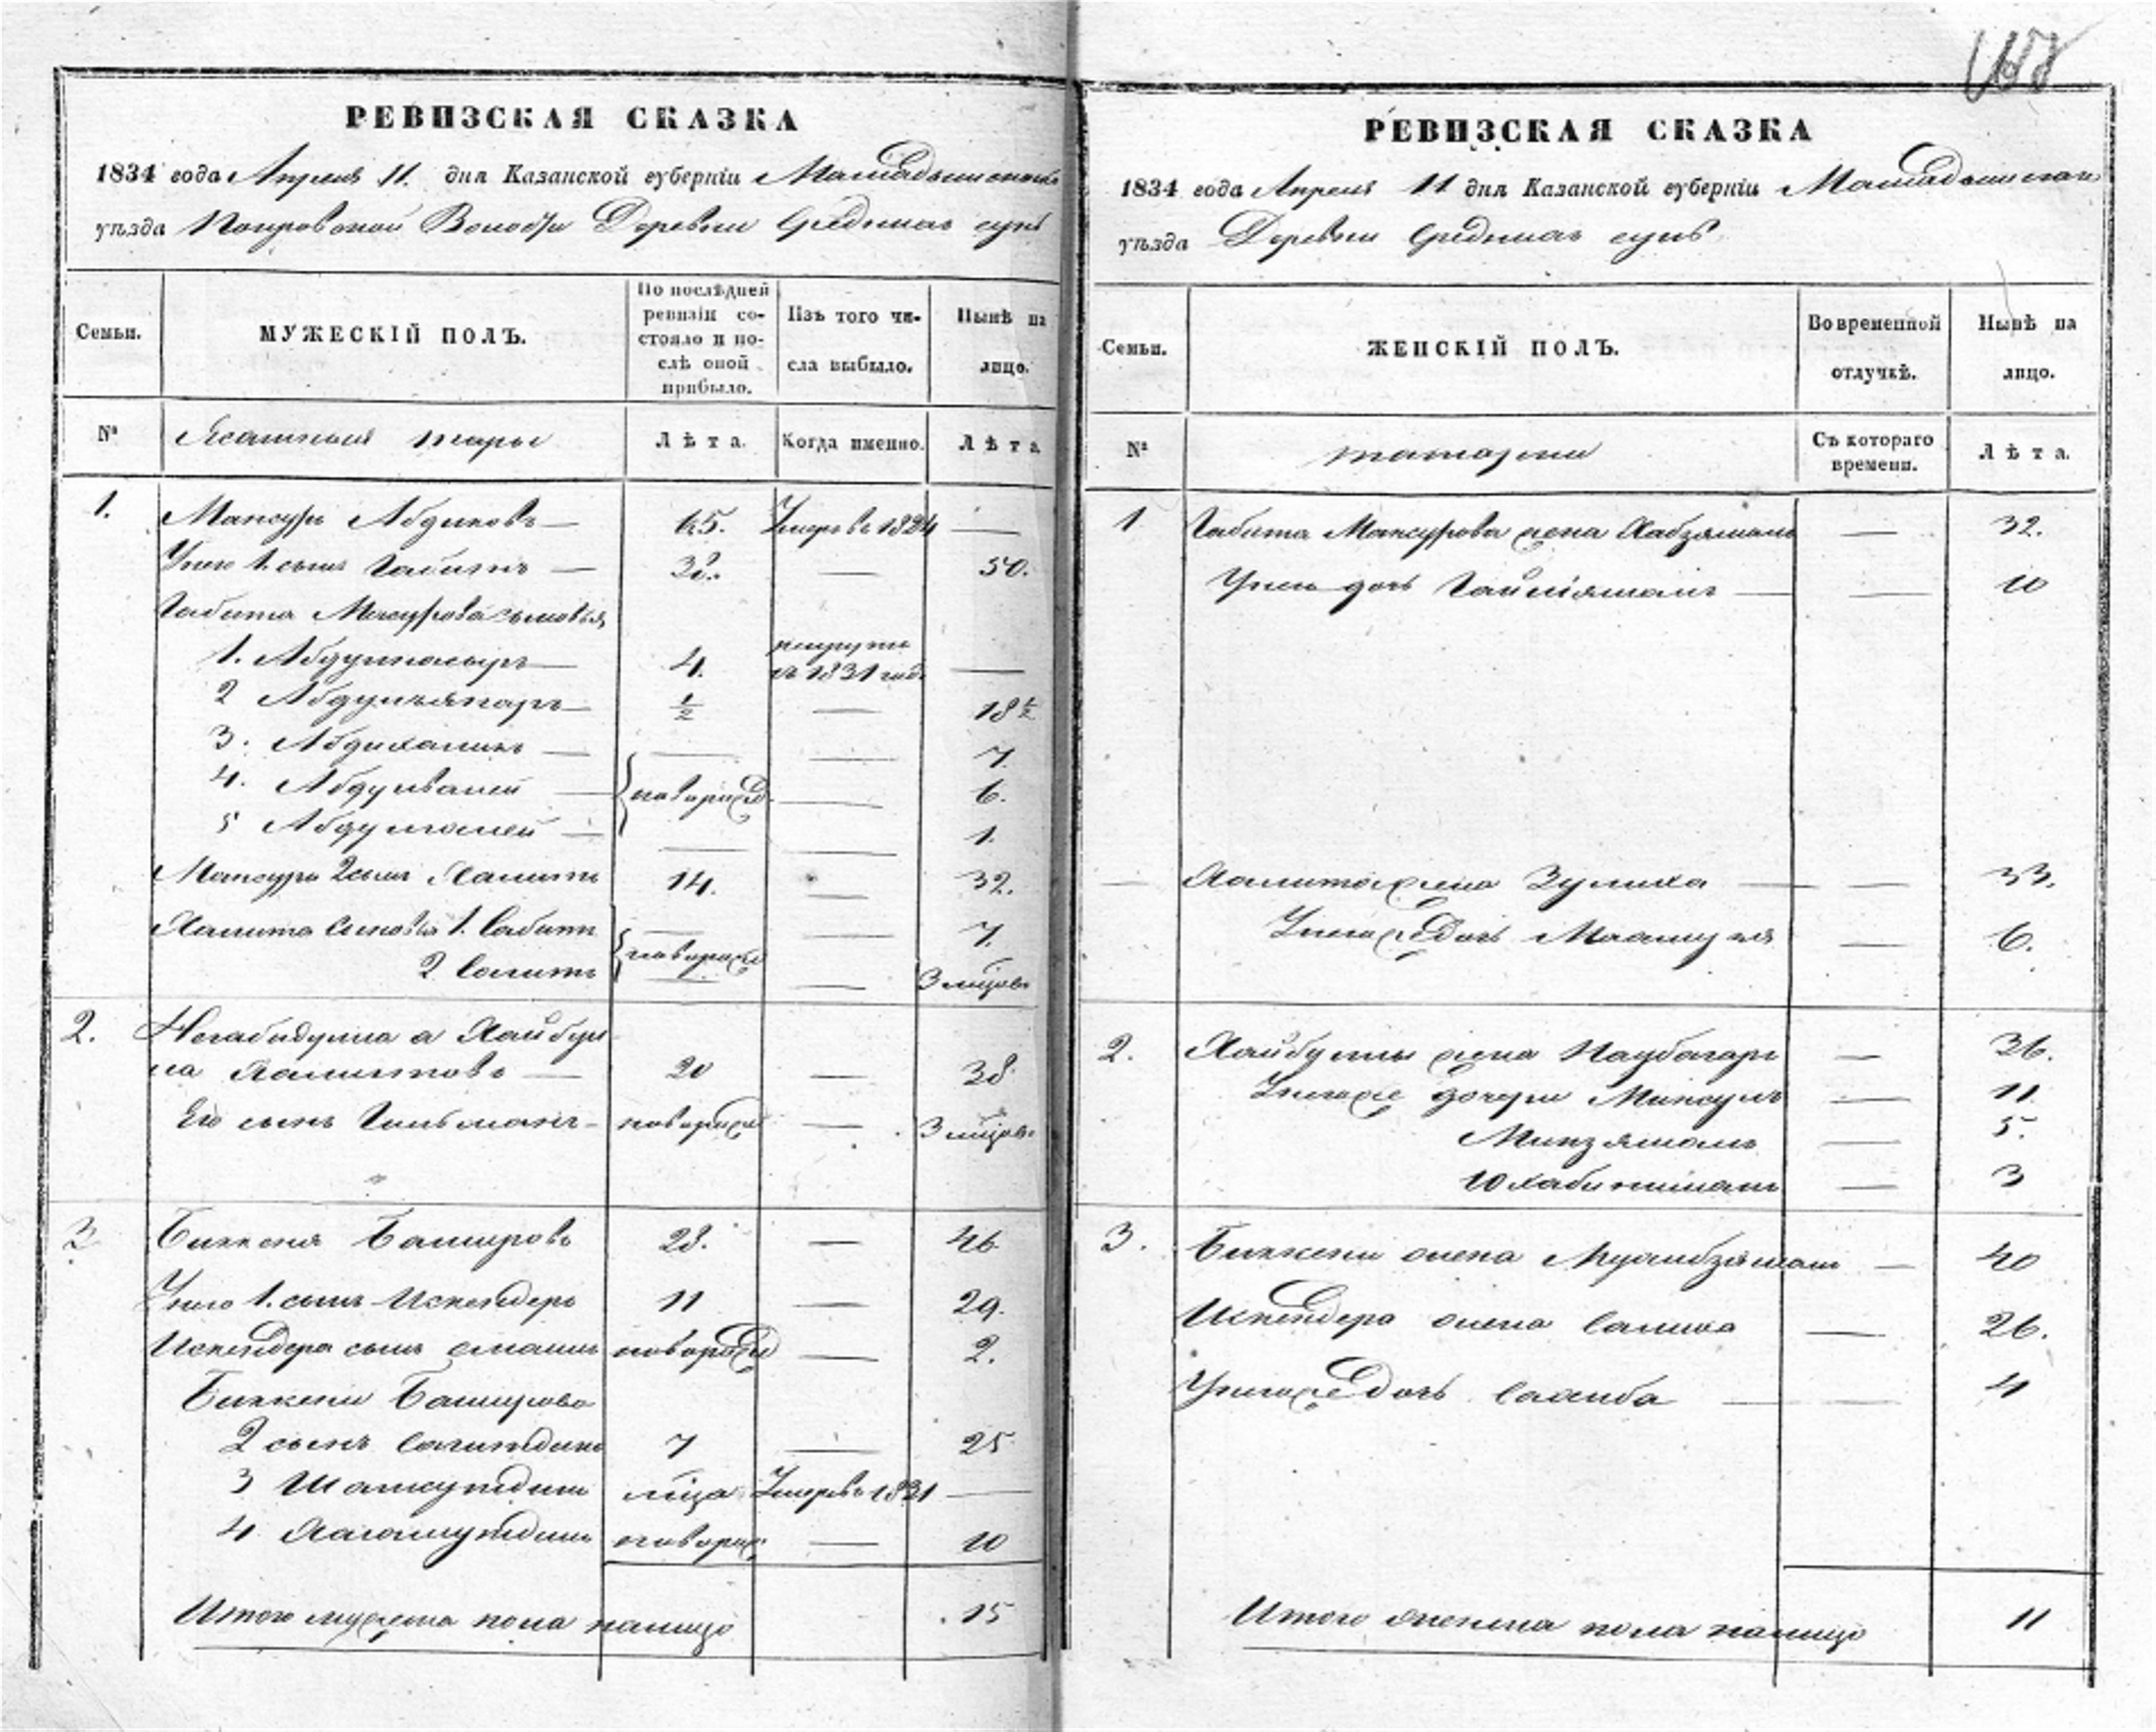 РЕВИЗСКАЯ СКАЗКА
1834 года Апреля 11. дня Казанской губернiи Мамадышскаго
уѣзда Волости Деревни Средних сунь
Семьи.
МУЖЕСКIЙ ПОЛЪ.
По послѣдней ревизiи состояло и послѣ оной прибыло.
Изъ того числа выбыло.
Нынѣ на лицо.
№
Ясашныя тары
Лѣта.
Когда именно.
Лѣта
1. Мансуръ Абдиковъ — 65. Умеръ въ 1824 —
У него 1. сынъ Габитъ — 32. — 50.
Габита Мансурова сыновья
1. Абдулнасыръ — 4. рекруты въ 1831 год. —
2 Абдулъяпаръ — 1/2 — 18 1/2
3. Абдихаликъ — — — 7.
4. Абдулвалей — новорожд. — 6.
5 Абдулгалей — — 1.
Мансура 2 сынъ Халитъ 14. — 32.
Халита Сыновья 1. Сабитъ — — 7.
2 Салитъ новорож — 3 мѣсяцов
2. Негабидулла а Хайбул
ла Халитовъ — 20 — 38
Его сынъ Гильманъ - новорож — 3 мѣсяц.
3 Биккеня Башировъ 28. — 46
У него 1. сынъ Искендеръ 11 — 29.
Искендера сынъ новорожд — 2.
Биккени Баширова
2 сынъ Салитдинъ 7 — 25
3 Шамсутдинъ мѣсца Умеръ въ 1831 —
4 новорож — 10
Итого мужеска пола налицо 15
РЕВИЗСКАЯ СКАЗКА
1834 года Апреля 11 дня Казанской губернiи Мамадышскаго
уѣзда Деревни Средних сунь
Семьи.
ЖЕНСКIЙ ПОЛЪ.
Во временной отлучкѣ.
Нынѣ на лицо.
№
татарки
Съ котораго времени.
Лѣта.
1 Габита Мансурова жена Хабзямалъ — 32.
У нея дочь Гайнiямалъ — — 10
— Халита жена Зулиха — — 33.
У нихже дочь — 6.
2. Хайбуллы жена Наубагаръ — 36.
У нихже дочери Минсулу — 11
Минзямалъ — 5.
— 3
3. Биккени жена — 40
Искендера жена Салиха — 26.
У нихже дочь Сахиба — — 4
Итого женска пола налицо 11